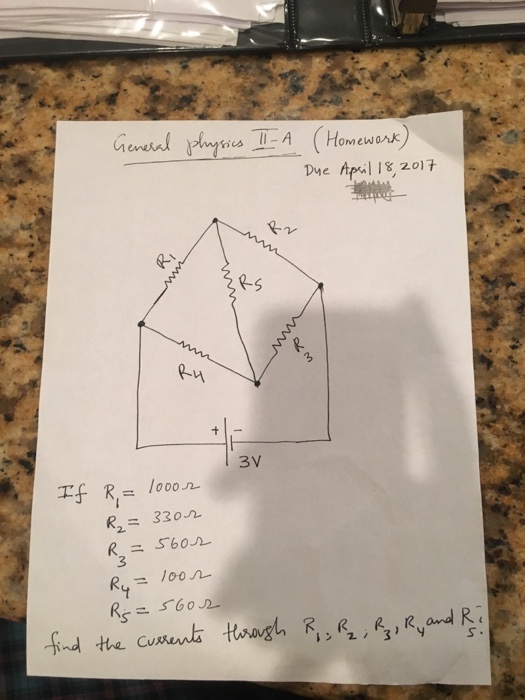 General physics II-A (Homework)
Due April 18, 2017
R1
R2
R5
R4
R3
+ -
3V
If R1 = 1000Ω
R2 = 330Ω
R3 = 560Ω
R4 = 100Ω
R5 = 560Ω
find the currents through R1, R2, R3, R4 and R5.